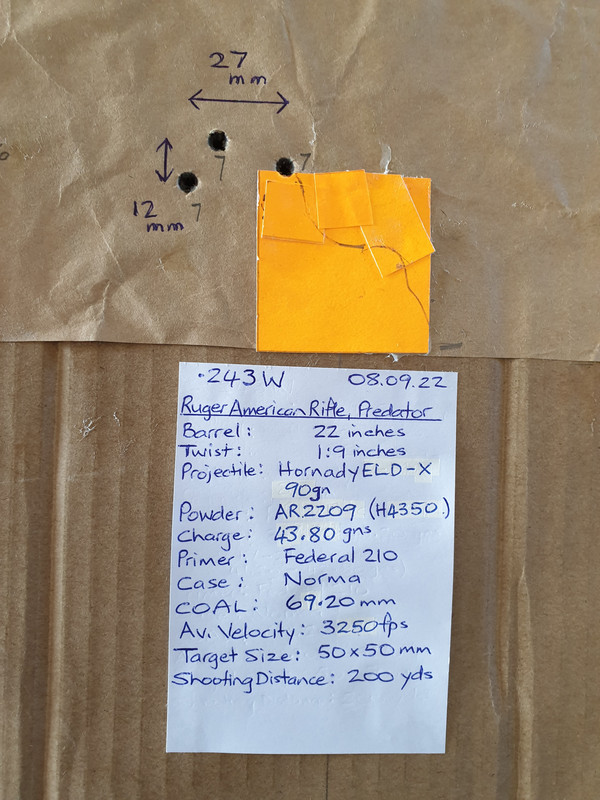 27
mm
7
7
12
mm
7
.243W 08.09.22
Ruger American Rifle, Predator
Barrel: 22 inches
Twist: 1:9 inches
Projectile: Hornady ELD-X
90gn
Powder: AR2209 (H4350.)
Charge: 43.80 gns
Primer: Federal 210
Case: Norma
COAL: 69.20 mm
Av. Velocity: 3250fps
Target Size: 50x50mm
Shooting Distance: 200 yds